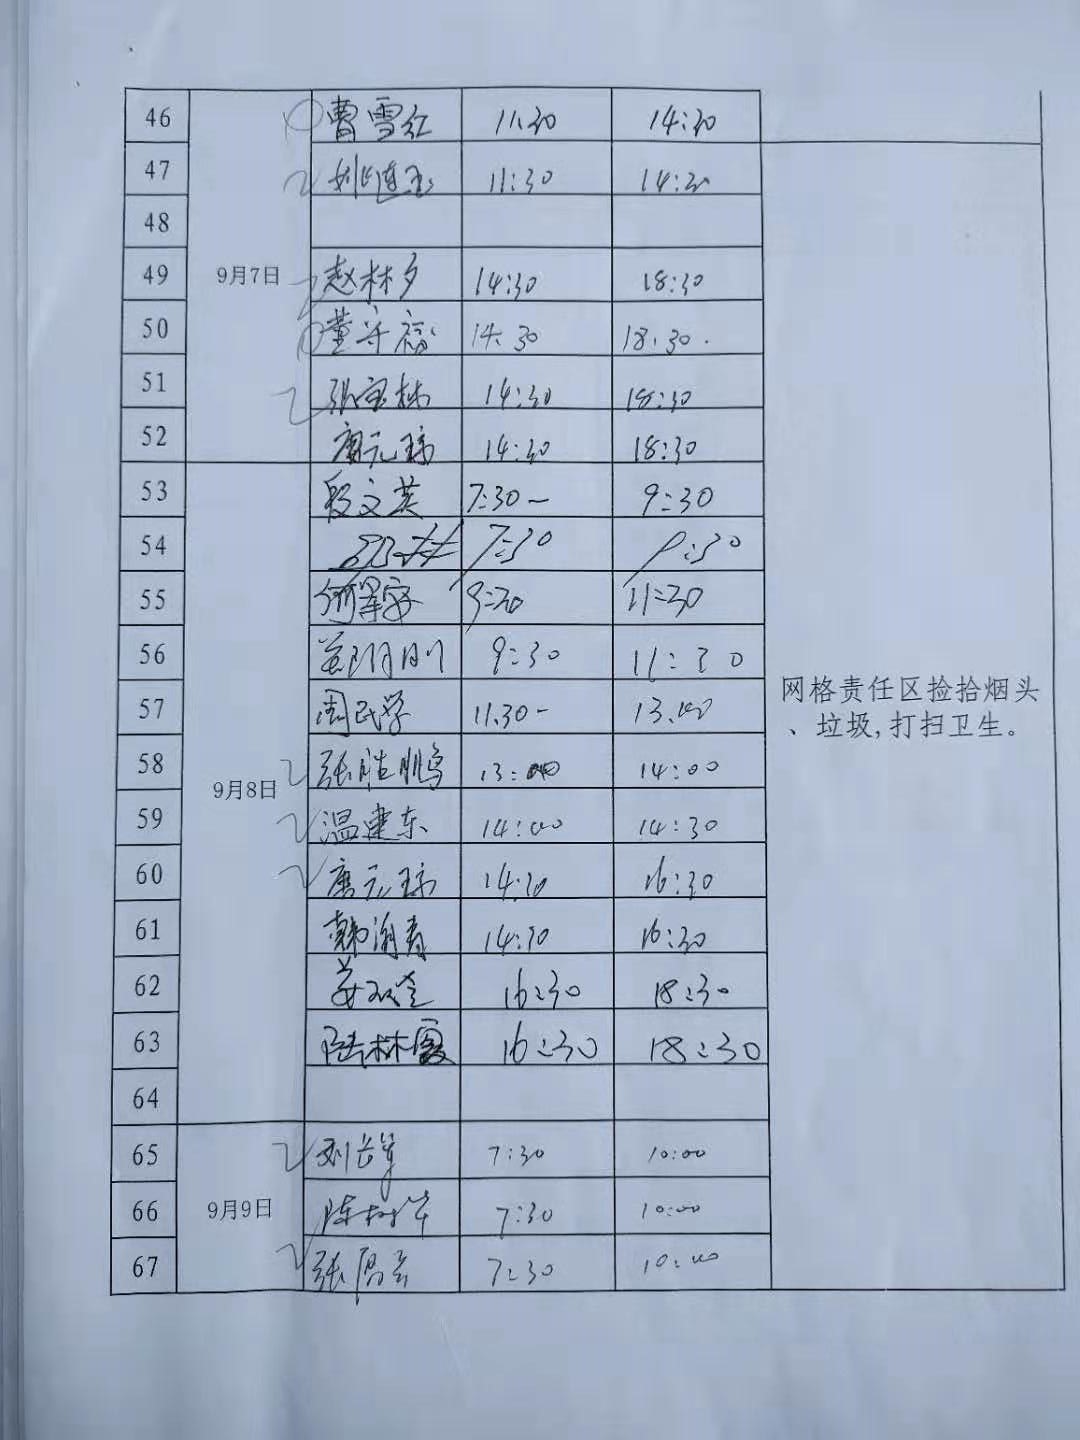 46 曹雪红 11:30 14:30
47 姚连玉 11:30 14:30
48
49 9月7日 赵林夕 14:30 18:30
50 董守福 14:30 18:30.
51 张宝林 14:30 18:30
52 唐元琼 14:30 18:30
53 段文英 7:30- 9:30
54 7:30 9:30
55 何军安 9:30 11:30
56 9:30 11:30
57 周民学 11:30- 13:00
58 9月8日 张胜鹏 13:00 14:00
59 温建东 14:00 14:30
60 唐元琼 14:30 16:30
61 韩海青 14:30 16:30
62 16:30 18:30
63 陆林霞 16:30 18:30
64
65 刘长军 7:30 10:00
66 9月9日 陈树华 7:30 10:00
67 张启云 7:30 10:00
网格责任区捡拾烟头
、垃圾,打扫卫生。